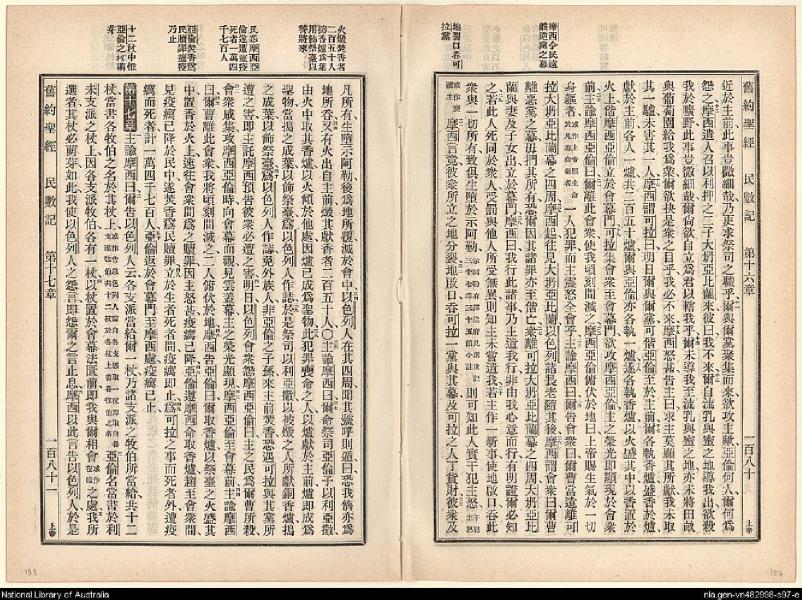 摩西令民遠
離逆黨之幕
地裂口吞可
拉黨
舊約聖經 民數記 第十六章 一百八十 上帝
近於主前此事豈微細哉乃更求祭司之職乎爾與爾黨聚集而來欲攻主歟亞倫何人爾何爲
怨之摩西遣人召以利押之三子大坍亞比蘭來彼曰我不來爾自流乳與蜜之地導我出欲殺
我於曠野此事豈微細哉爾尚欲自立爲君以轄我乎爾未導我至流乳與蜜之地亦未將田畝
與葡萄園給我爲業爾欲抉是衆之目乎我必不來摩西怒甚告主曰求主莫顧其所獻我未取
其一驢未害其一人摩西謂可拉曰明日爾與爾黨可偕亞倫至於主前爾各執香爐盛香於爐
獻於主前各人一爐共二百五十爐爾與亞倫亦各執一爐遂各執香爐以火盛其中以香置於
火上偕摩西亞倫立於會幕門可拉集會衆至會幕門欲攻摩西亞倫主之榮光即顯現於會衆
前主諭摩西亞倫曰爾離此會衆使我頃刻間滅之摩西亞倫俯伏於地曰上帝賜生氣於一切
一人犯罪而主震怒全會乎主諭摩西曰爾告會衆曰爾曹當遠離可
拉大坍亞比蘭幕之四周摩西起往見大坍亞比蘭以色列諸長老隨其後摩西謂會衆曰爾曹
離惡黨之幕毋捫其所有恐爾因其諸罪亦至偕亡衆離可拉大坍亞比蘭幕之四周大坍亞比
蘭與妻及子女出立於幕門摩西曰我行此諸事乃主遣我行非由我心意而行有明證爾必知
之若此人死同於衆人受罰與他人所受無異則知主未嘗遣我若主作一新事使地啟口吞此
衆與一切所有致俱生墮於示阿勒
則可知此人實干犯主怒
摩西言竟彼衆所立之地分裂地啟口吞可拉一黨與其幕及可拉之人丁貨財彼衆及
火燬焚香者
二百五十人
諭香爐爲集
用飾祭臺以
警將來
民怨摩西亞
倫遂遭疫
死者一萬四
千七百人
亞倫焚香爲
民贖罪疫
乃止
十二杖中惟
亞倫之杖萌
芽
凡所有生墮示阿勒後爲地所覆滅於會中以色列人在其四周聞其號呼則遁曰恐我儕亦爲
地所吞又有火出自主前燬其獻香者二百五十人〇主諭摩西曰爾命祭司亞倫子以利亞撒
由火中取其香爐以火傾於他處因爐已成爲聖物此犯罪喪命之人以爐獻於主前爐即成爲
聖物當搗之成葉以飾祭臺爲以色列人作誌於是祭司以利亞撒以被燬之人所獻銅香爐搗
之成葉以飾祭臺爲以色列人作誌免外族人非亞倫之子孫來主前焚香恐遇可拉與其黨所
遭之害即主託摩西預告彼衆必遭之害明日以色列會衆怨摩西亞倫曰主之民爲爾曹所殺
會衆咸集攻摩西亞倫時向會幕而觀見雲蓋幕主之榮光顯現摩西亞倫至會幕前主諭摩西
曰爾曹離此會衆我將頃刻間滅之二人俯伏於地摩西告亞倫曰爾取香爐以祭臺之火盛其
中置香於火上速往會衆間爲之贖罪因主怒甚疫癘已降亞倫遵摩西命取香爐趨至會衆間
見疫癘已降於民中遂焚香爲民贖罪立於生者死者間疫癘即止爲可拉之事而死者外遭疫
癘而死者計一萬四千七百人亞倫返於會幕門至摩西處疫癘已止
第十七章 主諭摩西曰爾告以色列人云各支派當給爾一杖乃諸支派之牧伯所當給共十二
杖當書各牧伯之名於其杖上
亞倫名當書於利
未支派之杖上因各支派牧伯各有一杖以杖置於會幕法匱前即我與爾相會之處我所
選者其杖必萌芽如此我使以色列人之怨言即怨爾之言止息摩西以此言告以色列人於是
舊約聖經 民數記 第十七章 一百八十一 上帝
188
187
National Library of Australia
nla.gen-vn482998-s97-e